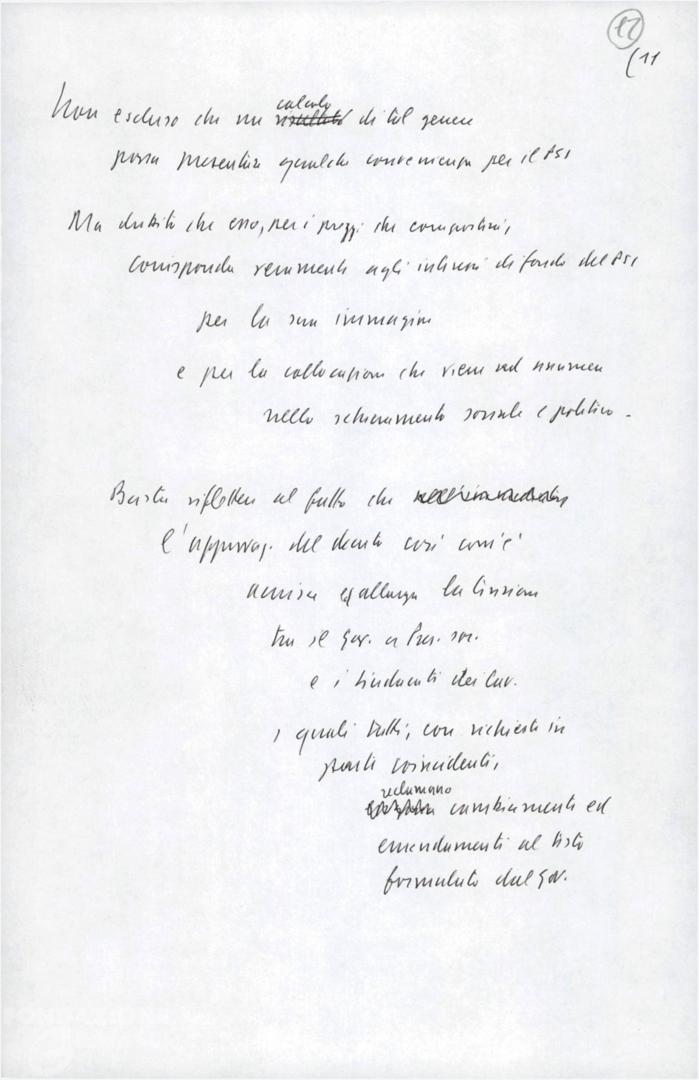 17
(11
Non escluso che un calcolo di tal genere
possa presentare qualche convenienza per il PSI
Ma dubito che esso, per i prezzi che comporterà,
corrisponda veramente agli interessi di fondo del PSI
per la sua immagine
e per la collocazione che viene ad assumere
nello schieramento sociale e politico.
Basta riflettere al fatto che
l'approvaz. del decreto così com'è
acuisce ed allarga la tensione
tra il gov. a Pres. soc.
e i sindacati dei lav.
i quali tutti, con richieste in
parte coincidenti,
reclamano cambiamenti ed
emendamenti al testo
formulato dal gov.